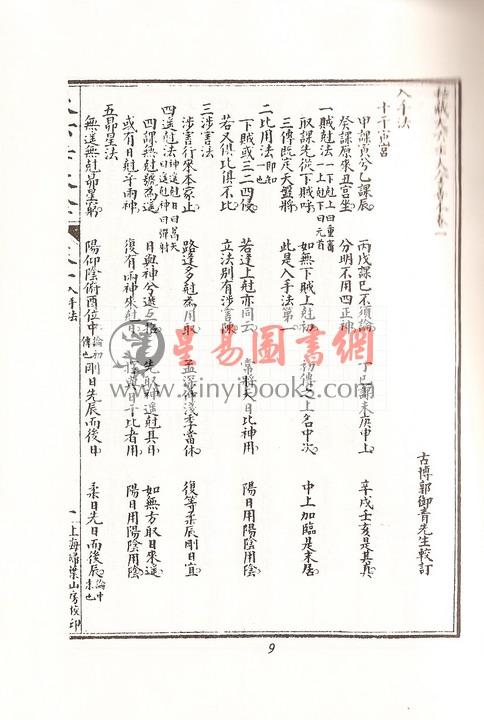 古博郭御青先生較訂
入手法
十干寄宮
甲課寅兮乙課辰 丙戊課巳不須論 丁己課未庚申上 辛戌壬亥是其真
癸課原來丑宮坐 分明不用四正神
一賊尅法 一下尅上曰重審 一上尅下曰元首
取課先從下賊呼 如無下賊上尅初 初傳之上名中次 中上加臨是末居
三傳既定天盤將 此是入手法第一
二比用法 即知一也
下賊或三二四侵 若逢上尅亦同云 常將天日比神用 陽日用陽陰用陰
若又俱比俱不比 立法別有涉害陳
三涉害法
涉害行來本家止 路逢多尅為用取 孟深仲淺季當休 復等柔辰剛日宜
四遙尅法 神遙尅日曰蒿矢 日遙尅神曰彈射
四課無尅號為遙 日與神兮遞互招 先取神遙尅其日 如無方取日來遙
或有日尅乎兩神 復有兩神來尅日 擇與日干比者用 陽日用陽陰用陰
五昴星法
無遙無尅昴星窮 陽仰陰俯酉位中 論初傳也 剛日先辰而後日 柔日先日而後辰 論中末也
入手法
一 上海埽葉山房校印
星易圖書網
www.xinyibooks.com
9